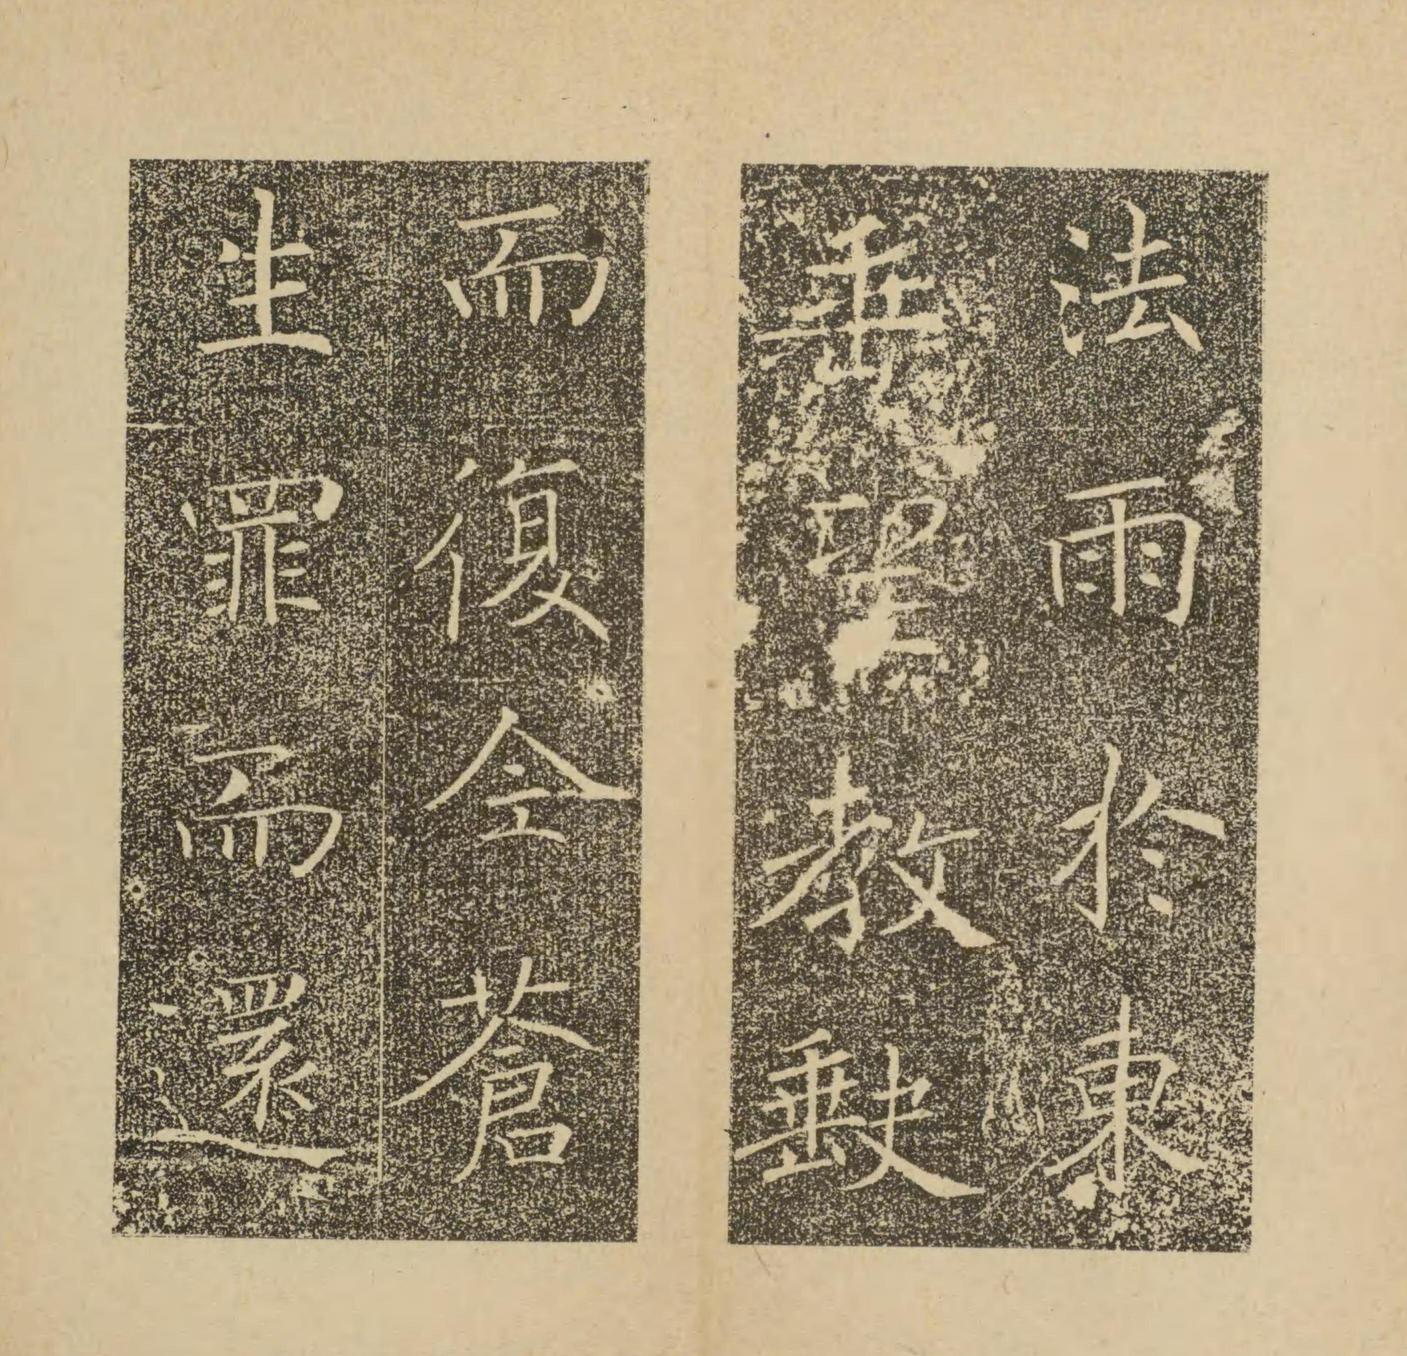 法雨於東
垂聖教缺
而復全蒼
生罪而還